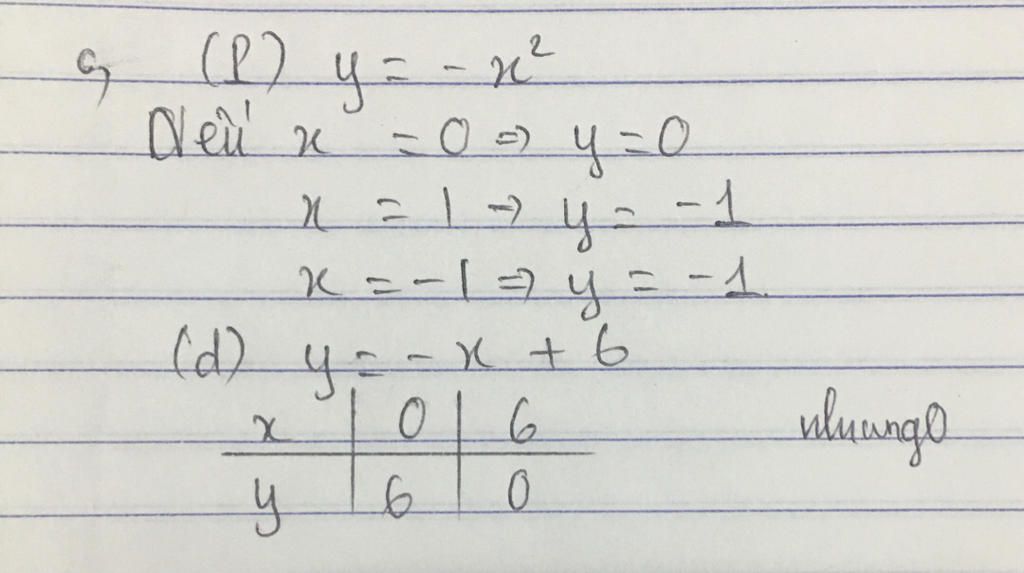 a, (P) y = - x²
Nếu x = 0 ⇒ y = 0
x = 1 → y = -1
x = -1 ⇒ y = -1
(d) y = - x + 6
x | 0 | 6
nhungo
y | 6 | 0